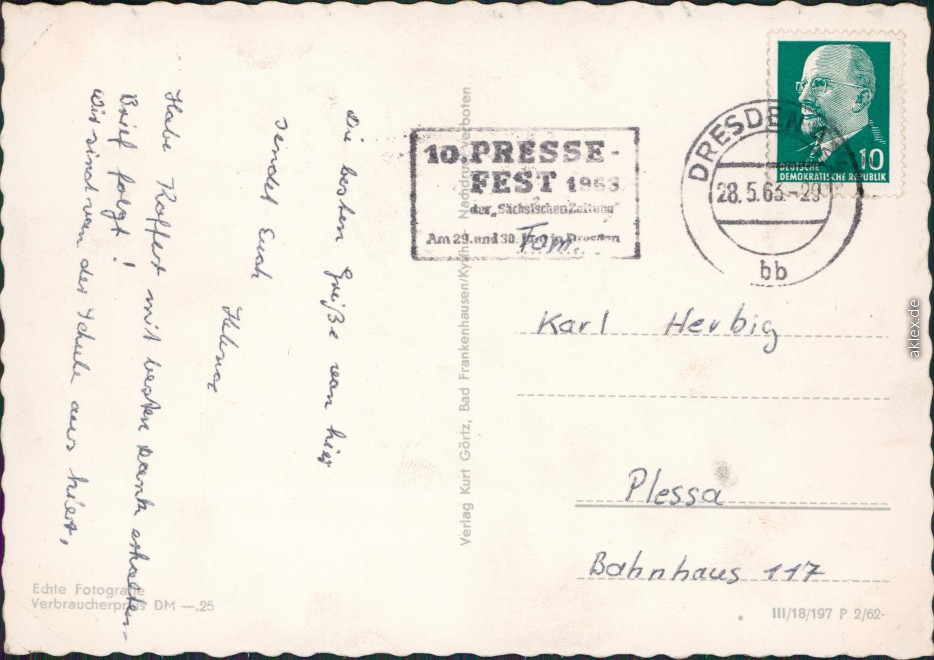 Die besten Grüße von hier
sendet Euch
Helmar
Habe Koffer mit besten Dank erhalten
Brief folgt!
Wir sind von der Schule aus hier,
10. PRESSE-
FEST 1963
der „Sächsischen Zeitung"
Am 29. und 30. Juni in Dresden
DRESDEN A
28.5.63.-20
bb
10
DEUTSCHE
DEMOKRATISCHE REPUBLIK
Fam.
Karl Herbig
Plessa
Bahnhaus 117
Verlag Kurt Görtz, Bad Frankenhausen/Kyffh. - Nachdruck verboten
Echte Fotografie
Verbraucherpreis DM —.25
III/18/197 P 2/62·
aklex.de